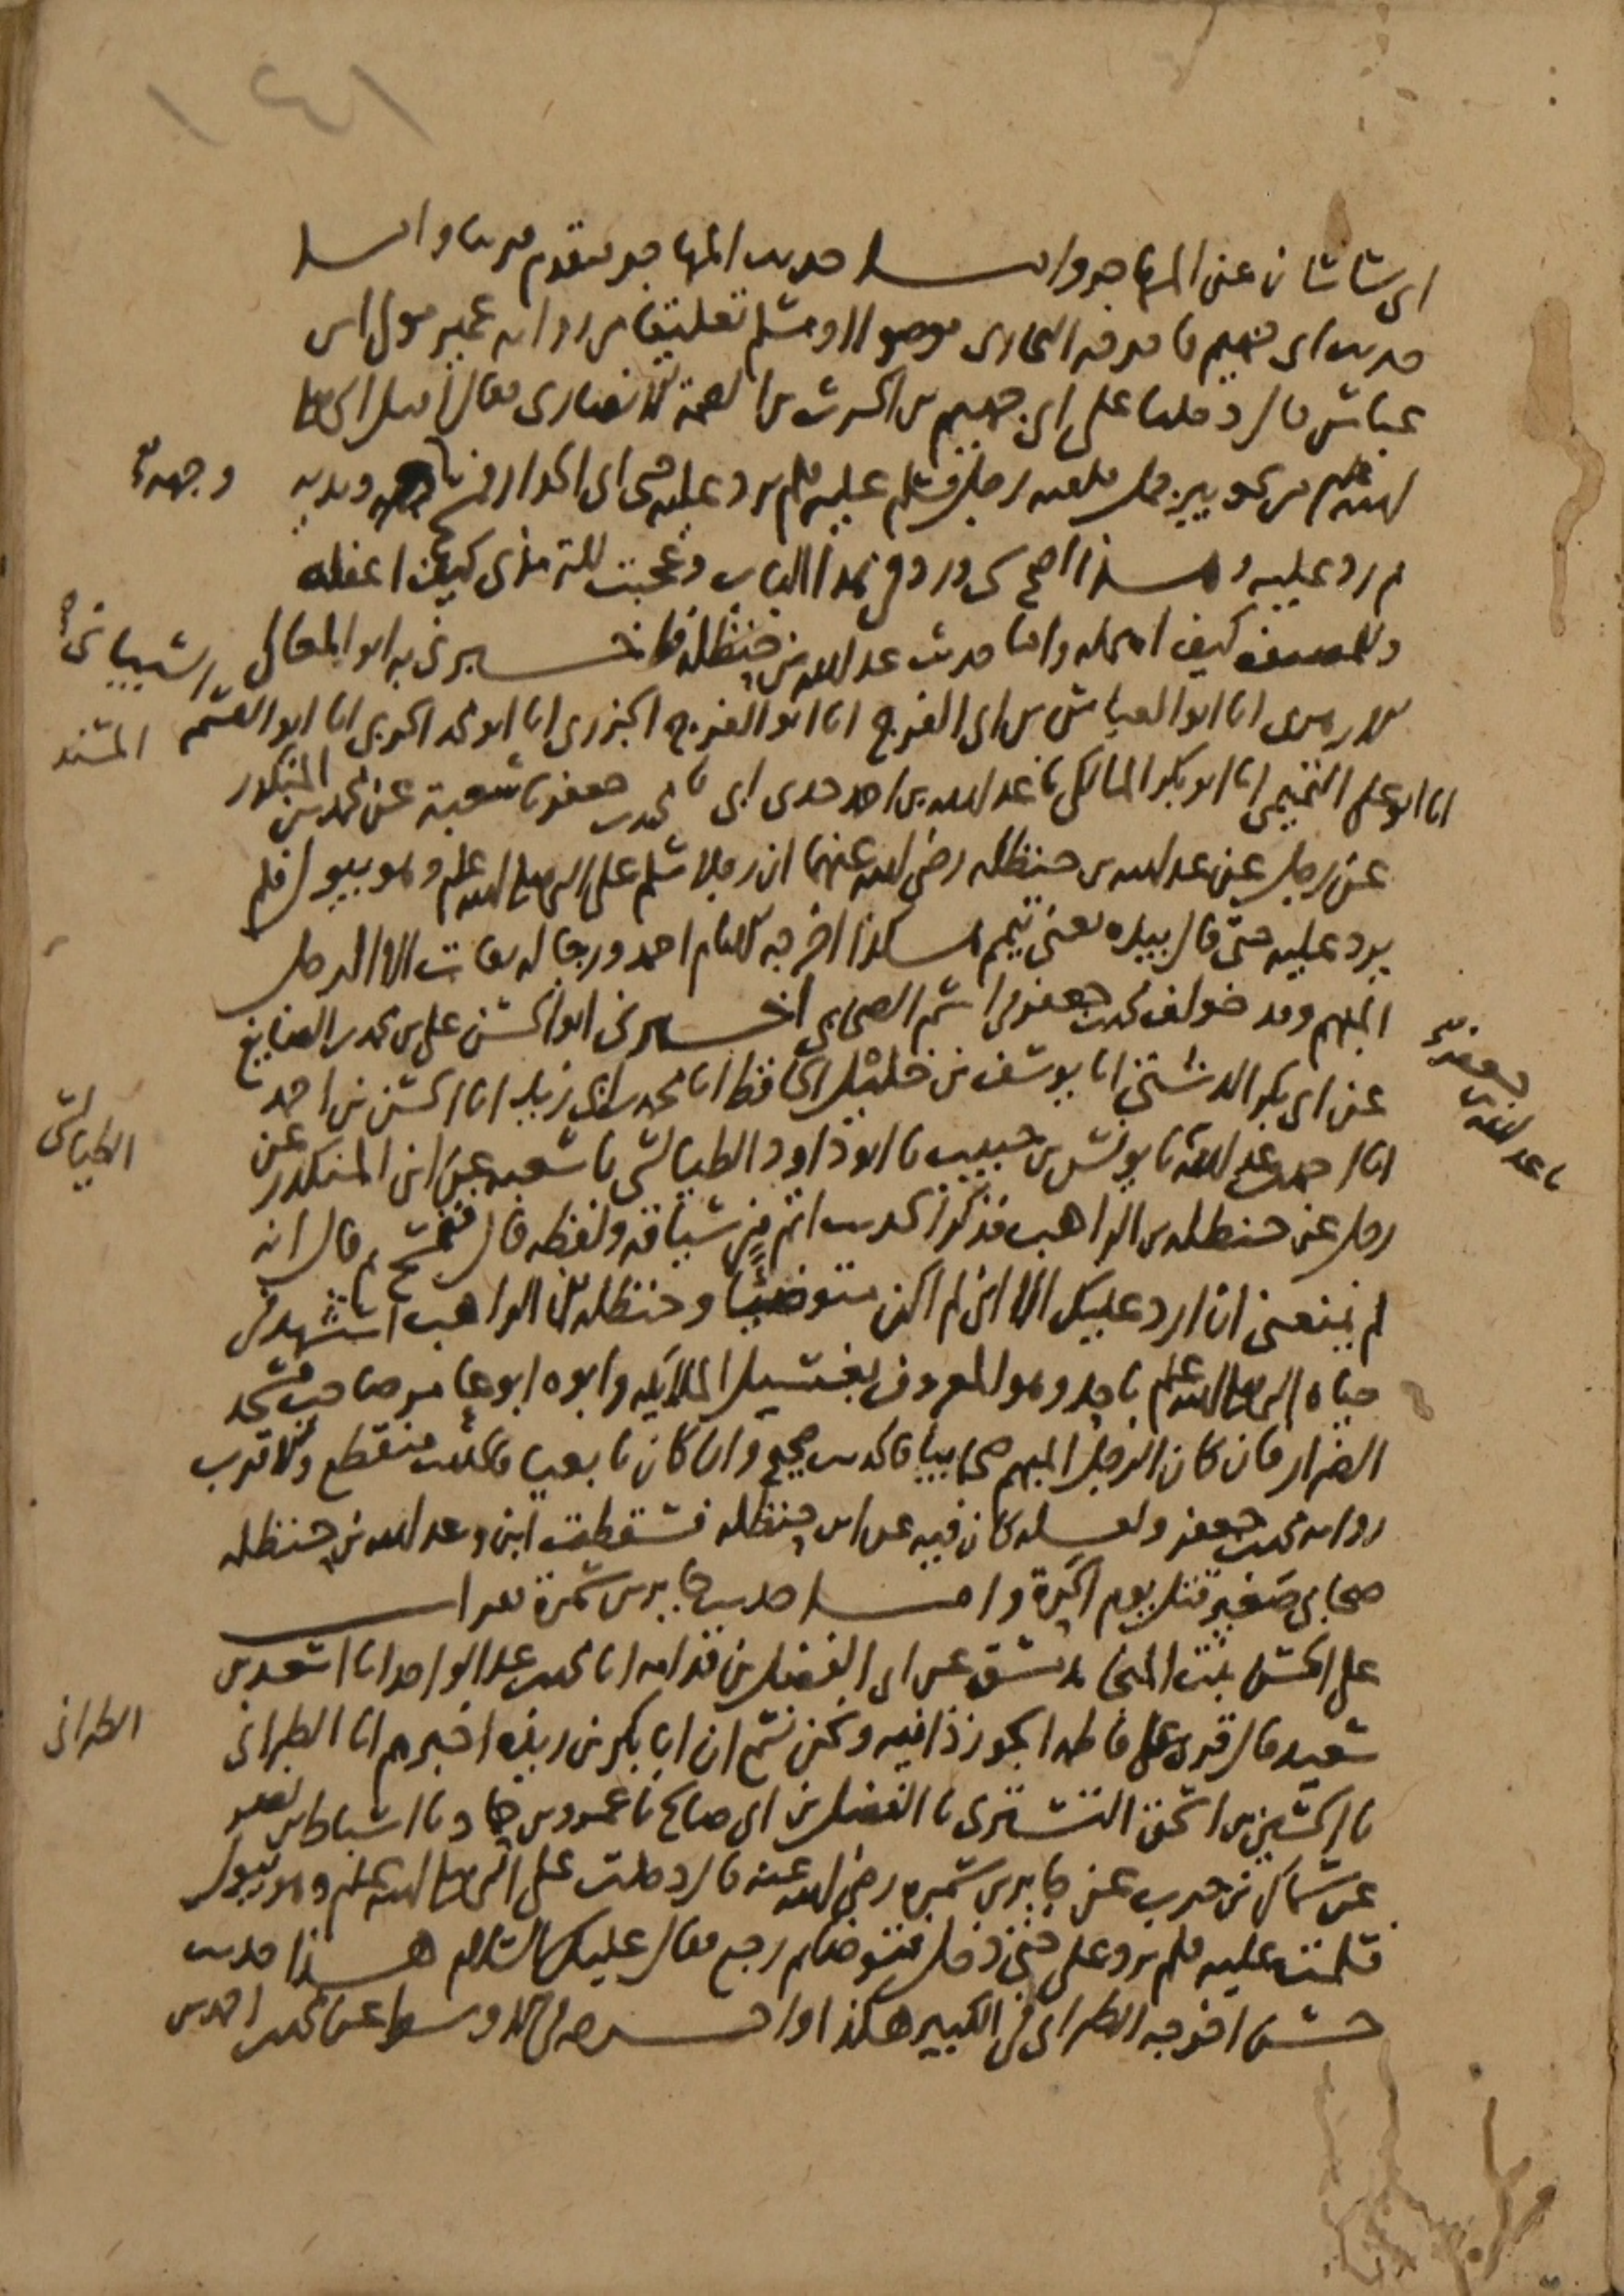 ١٤١
ابي ساسان عن المهاجر وأما حديث المهاجر فتقدم قريبا وأما
حديث ابي جهيم فاخرجه البخاري موصولا ومسلم تعليقا من رواية عمير مولى ابن
عباس قال دخلنا على ابي جهيم بن الحرث بن الصمة الانصاري فقال اقبل النبي صلى
الله عليه وسلم من نحو بير جمل فلقيه رجل فسلم عليه فلم يرد عليه حتى اتى الجدار فمسح ويديه
وجهه صح
ثم رد عليه وهذا اصح شي ورد في هذا الباب وعجبت للترمذي كيف اغفله
وللمصنف كيف اهمله واما حديث عبد الله بن حنظلة فاخبرني به ابو المعالي
انا ابو العباس بن ابي الفرج انا ابو الفرج الجزري انا ابو محمد الحربي انا ابو القسم الشيباني صح
المسند
انا ابو علي التميمي انا ابو بكر المالكي نا عبد الله بن احمد حدثني ابي نا محمد بن جعفر نا شعبة عن محمد بن المنكدر
عن رجل عن عبد الله بن حنظلة رضي الله عنهما ان رجلا سلم على النبي صلى الله عليه وسلم وهو يبول فلم
يرد عليه حتى قال بيده يعني تيمم هكذا اخرجه الامام احمد ورجاله ثقات الا الرجل
المبهم وقد خولف محمد بن جعفر في اسم الصحابي اخبرني ابو الحسن علي بن محمد بن الصايغ
عن ابي بكر الدشتي انا يوسف بن خليل الحافظ انا محمد بن ابي زيد انا الحسن بن احمد
نا عبد الله بن جعفر صح
انا احمد بن عبد الله نا يونس بن حبيب نا ابو داود الطيالسي نا شعبة عن ابن المنكدر عن
الطيالسي
رجل عن حنظلة بن الراهب فذكر الحديث اتم من سياقه ولفظه قال فتمسح ثم قال انه
لم يمنعني ان ارد عليك الا اني لم اكن متوضيا وحنظلة بن الراهب استشهد في
حياة النبي صلى الله عليه وسلم باحد وهو المعروف بغسيل الملايكة وابوه ابو عامر صاحب مسجد
الضرار فان كان الرجل المبهم صحابيا فالحديث صحيح وان كان تابعيا فالحديث منقطع والاقرب
رواية محمد بن جعفر ولعله كان فيه عن ابن حنظلة فسقطت ابن وعبد الله بن حنظلة
صحابي صغير قتل يوم الحرة وأما حديث جابر بن سمرة فقرأت
على ام الحسن بنت المنجا بدمشق عن ابي الفضل بن قدامة انا محمد بن عبد الواحد انا اسعد بن
سعيد قال قرئ على فاطمة الجوزذانية ونحن نسمع ان ابا بكر بن ريذة اخبرهم انا الطبراني
الطبراني
نا الحسين بن اسحق التستري نا الفضل بن ابي صالح نا عمرو بن حماد نا اسباط بن نصر
عن سماك بن حرب عن جابر بن سمرة رضي الله عنه قال دخلت على النبي صلى الله عليه وسلم وهو يبول
فسلمت عليه فلم يرد علي حتى دخل فتوضا ثم رجع فقال عليك السلام هذا حديث
حسن اخرجه الطبراني في الكبير هكذا واخرجه في الاوسط عن محمد بن احمد بن